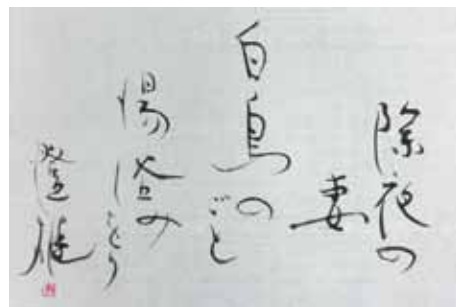 除夜の
妻
白鳥の
ごと
湯浴み
をり
澄雄